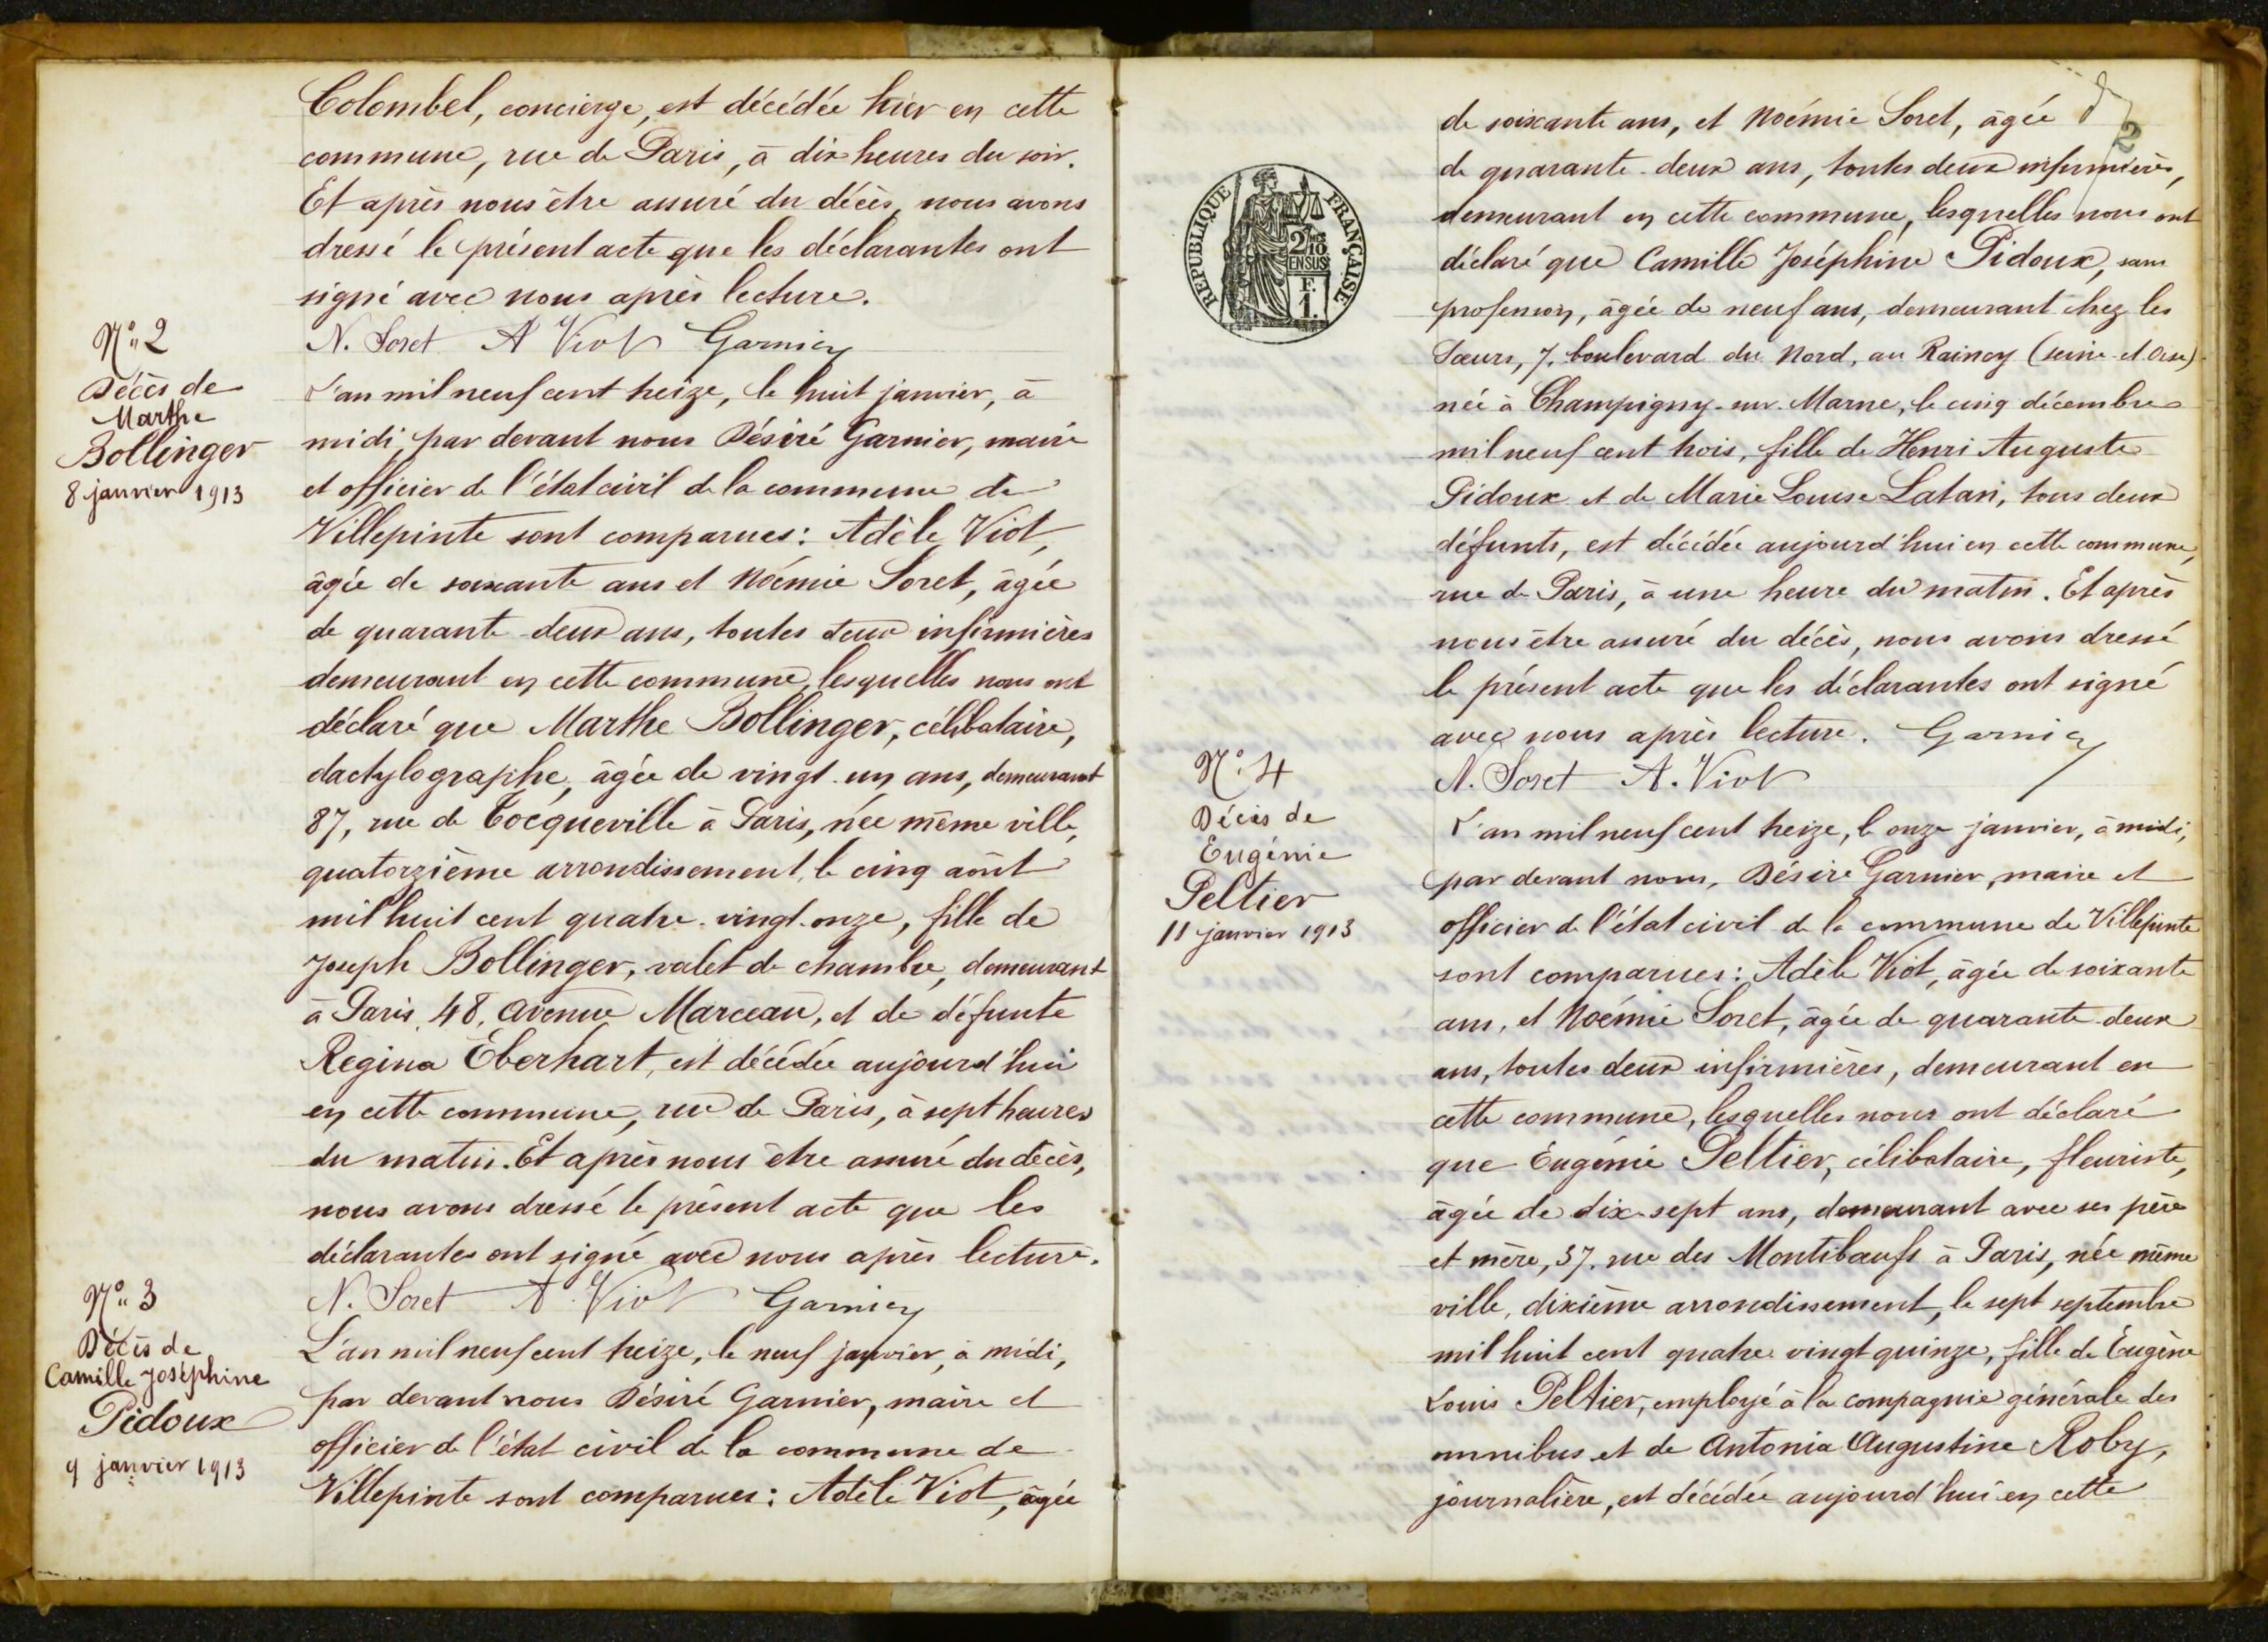 Colombel, concierge, est décédée hier en cette
commune, rue de Paris, à dix heures du soir.
Et après nous être assuré du décès, nous avons
dressé le présent acte que les déclarantes ont
signé avec nous après lecture.
N. Soret A Viot Garnier
N° 2
Décès de
Marthe
Bollinger
8 janvier 1913
L'an mil neuf cent treize, le huit janvier, à
midi, par devant nous Désiré Garnier, maire
et officier de l'état civil de la commune de
Villepinte sont comparues : Adèle Viot,
âgée de soixante ans et Noémie Soret, âgée
de quarante-deux ans, toutes deux infirmières
demeurant en cette commune, lesquelles nous ont
déclaré que Marthe Bollinger, célibataire,
dactylographe, âgée de vingt-un ans, demeurant
87, rue de Tocqueville à Paris, née même ville,
quatorzième arrondissement, le cinq août
mil huit cent quatre-vingt-onze, fille de
Joseph Bollinger, valet de chambre, demeurant
à Paris, 48, avenue Marceau, et de défunte
Regina Eberhart, est décédée aujourd'hui
en cette commune, rue de Paris, à sept heures
du matin. Et après nous être assuré du décès,
nous avons dressé le présent acte que les
déclarantes ont signé avec nous après lecture.
N. Soret A. Viot Garnier
N° 3
Décès de
Camille Joséphine
Pidoux
9 janvier 1913
L'an mil neuf cent treize, le neuf janvier, à midi,
par devant nous Désiré Garnier, maire et
officier de l'état civil de la commune de
Villepinte sont comparues : Adèle Viot, âgée
2
de soixante ans, et Noémie Soret, âgée
de quarante-deux ans, toutes deux infirmières,
demeurant en cette commune, lesquelles nous ont
déclaré que Camille Joséphine Pidoux, sans
profession, âgée de neuf ans, demeurant chez les
Sœurs, 7, boulevard du Nord, au Raincy (Seine-et-Oise)
née à Champigny-sur-Marne, le cinq décembre
mil neuf cent trois, fille de Henri Auguste
Pidoux et de Marie Louise Latari, tous deux
défunts, est décédée aujourd'hui en cette commune,
rue de Paris, à une heure du matin. Et après
nous être assuré du décès, nous avons dressé
le présent acte que les déclarantes ont signé
avec nous après lecture. Garnier
N. Soret A. Viot
REPUBLIQUE FRANÇAISE
2/10
EN SUS
F.
1.
N° 4
Décès de
Eugénie
Peltier
11 janvier 1913
L'an mil neuf cent treize, le onze janvier, à midi,
par devant nous, Désiré Garnier, maire et
officier de l'état civil de la commune de Villepinte
sont comparues : Adèle Viot, âgée de soixante
ans, et Noémie Soret, âgée de quarante-deux
ans, toutes deux infirmières, demeurant en
cette commune, lesquelles nous ont déclaré
que Eugénie Peltier, célibataire, fleuriste,
âgée de dix-sept ans, demeurant avec ses père
et mère, 37, rue des Montibœufs à Paris, née même
ville, dixième arrondissement, le sept septembre
mil huit cent quatre-vingt quinze, fille de Eugène
Louis Peltier, employé à la compagnie générale des
omnibus et de Antonia Augustine Roby,
journalière, est décédée aujourd'hui en cette